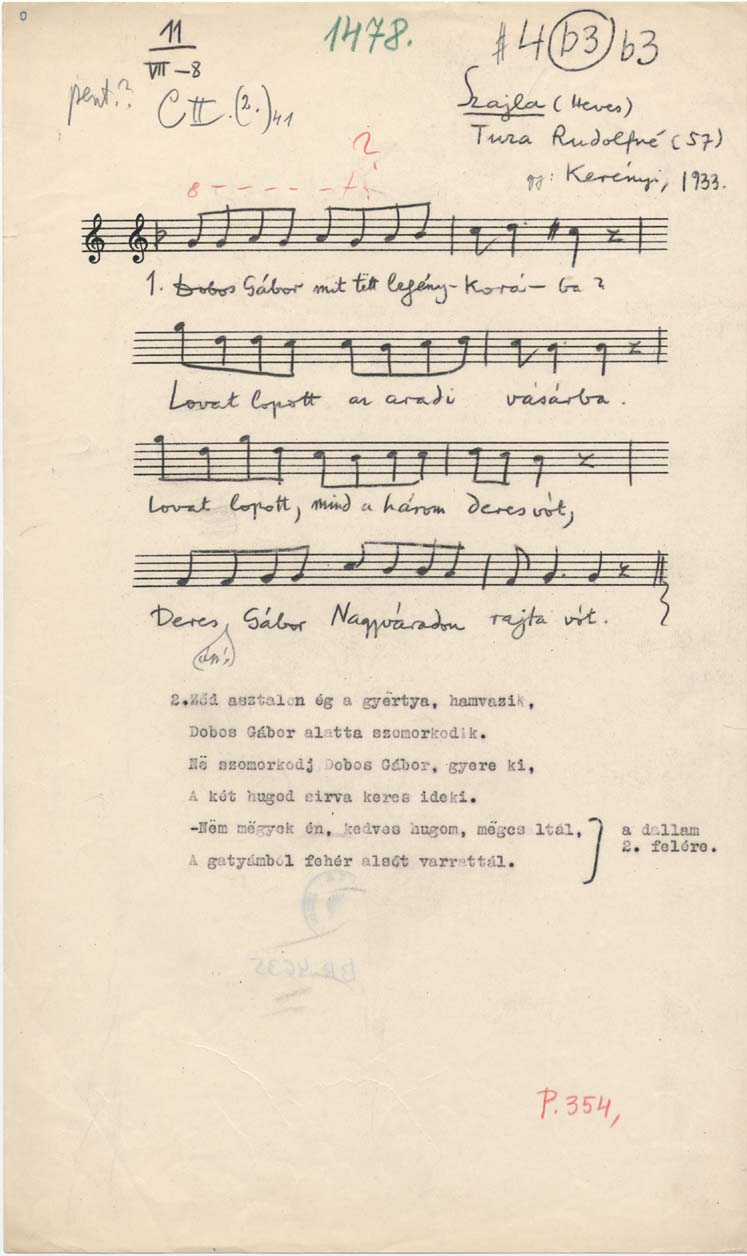 11
VII-8
1478.
#4 b3 b3
pent.?
C II. (2.) 41
Szajla (Heves)
Tuza Rudolfné (57)
gy: Kerényi, 1933.
8 - - - - - 7
2
1. Dobos Gábor mit tëtt legény-korá-ba?
Lovat lopott az aradi vásárba.
Lovat lopott, mind a három deres vót,
Deres, Gábor Nagyváradon rajta vót.
2. Ződ asztalon ég a gyërtya, hamvazik,
Dobos Gábor alatta szomorkodik.
Në szomorkodj Dobos Gábor, gyere ki,
A két hugod sirva keres ideki.
-Nëm mëgyek én, kedves hugom, mëgcsaltál,
A gatyámból fehér alsót varrattál.
a dallam
2. felére.
BR 4635
P. 354,